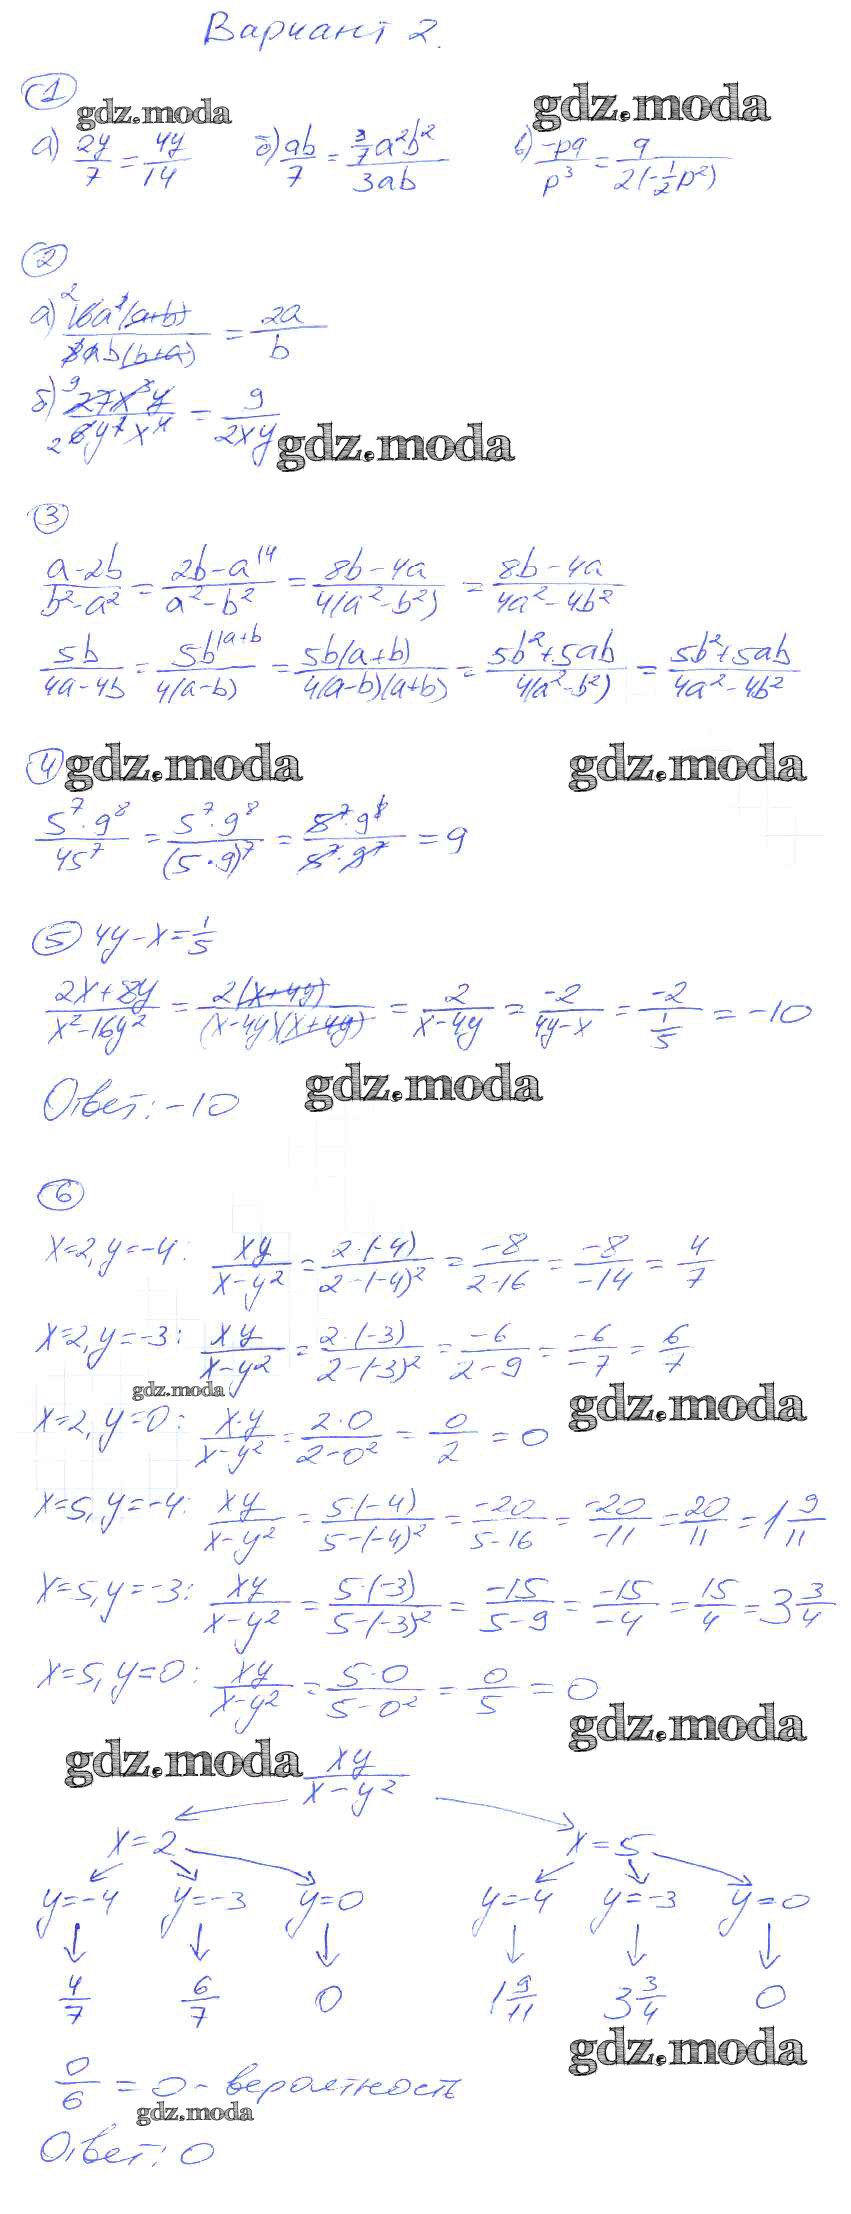 Вариант 2.
1
gdz.moda gdz.moda
а) 2y/7 = 4y/14 б) ab/7 = 3/7 a²b²/3ab в) -pq/p³ = q/2(-1/2 p²)
2
а) 16a²(a+b)/8ab(b+a) = 2a/b
б) 27x³y/6y²x⁴ = 9/2xy
gdz.moda
3
a-2b/b²-a² = 2b-a⁽⁴/a²-b² = 8b-4a/4(a²-b²) = 8b-4a/4a²-4b²
5b/4a-4b = 5b⁽ᵃ⁺ᵇ/4(a-b) = 5b(a+b)/4(a-b)(a+b) = 5b²+5ab/4(a²-b²) = 5b²+5ab/4a²-4b²
4 gdz.moda gdz.moda
5⁷·9⁸/45⁷ = 5⁷·9⁸/(5·9)⁷ = 5⁷·9⁸/5⁷·9⁷ = 9
5 4y-x=1/5
2x+8y/x²-16y² = 2(x+4y)/(x-4y)(x+4y) = 2/x-4y = -2/4y-x = -2/(1/5) = -10
Ответ: -10
gdz.moda
6
x=2, y=-4: xy/x-y² = 2·(-4)/2-(-4)² = -8/2-16 = -8/-14 = 4/7
x=2, y=-3: xy/x-y² = 2·(-3)/2-(-3)² = -6/2-9 = -6/-7 = 6/7
gdz.moda gdz.moda
x=2, y=0: x·y/x-y² = 2·0/2-0² = 0/2 = 0
x=5, y=-4: xy/x-y² = 5·(-4)/5-(-4)² = -20/5-16 = -20/-11 = 20/11 = 1 9/11
x=5, y=-3: xy/x-y² = 5·(-3)/5-(-3)² = -15/5-9 = -15/-4 = 15/4 = 3 3/4
x=5, y=0: xy/x-y² = 5·0/5-0² = 0/5 = 0
gdz.moda
gdz.moda xy/x-y²
x=2 x=5
y=-4 y=-3 y=0 y=-4 y=-3 y=0
4/7 6/7 0 1 9/11 3 3/4 0
gdz.moda
0/6 = 0 - вероятность
gdz.moda
Ответ: 0